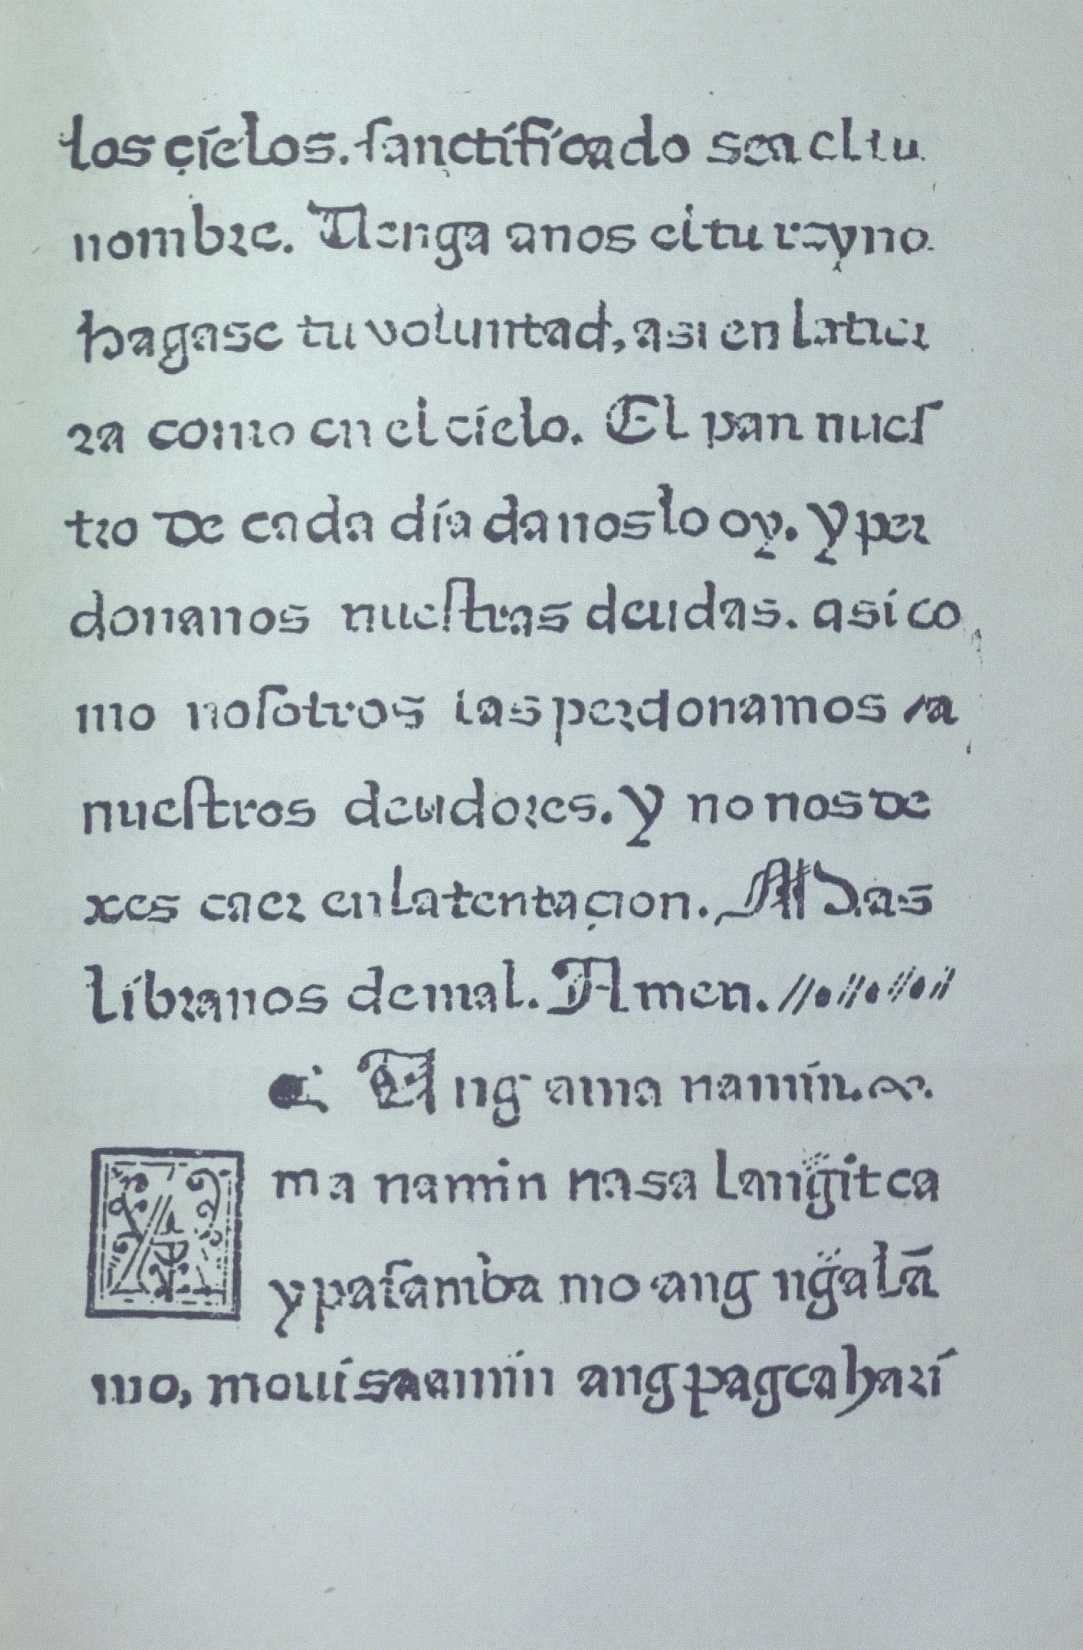 los çielos. ſanctificado sea el tu
nombre. Uenga anos el tu reyno.
hagase tu voluntad, asi en la tier
ra como en el cielo. El pan nueſ
tro de cada dia da nos lo oy. Y per
donanos nueſtras deudas. asi co
mo noſotros las perdonamos a
nueſtros deudores. Y no nos de
xes caer en la tentaçion. Mas
libranos de mal. Amen.
Ang ama namin.
Ama namin nasa langĩt ca
ypaſamba mo ang ngãlã
mo, moui sa amin ang pagcahari